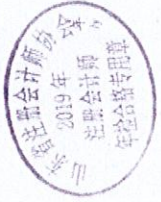 山东省注册会计师协会
2019年
注册会计师
年检合格专用章